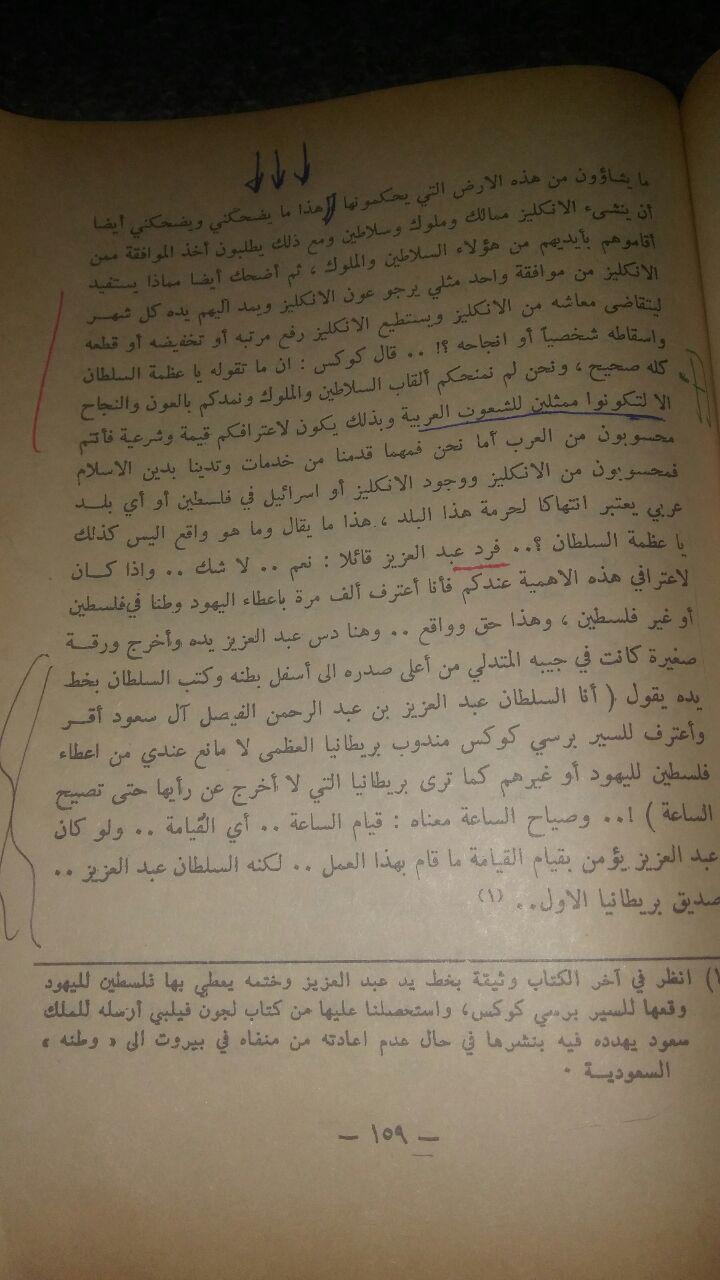 ما يشاؤون من هذه الارض التي يحكمونها ! هذا ما يضحكني ويضحكني أيضا
أن ينشىء الانكليز ممالك وملوك وسلاطين ومع ذلك يطلبون أخذ الموافقة ممن
أقاموهم بأيديهم من هؤلاء السلاطين والملوك ، ثم أضحك أيضا مماذا يستفيد
الانكليز من موافقة واحد مثلي يرجو عون الانكليز ويمد اليهم يده كل شهر
ليتقاضى معاشه من الانكليز ويستطيع الانكليز رفع مرتبه أو تخفيضه أو قطعه
واسقاطه شخصياً أو انجاحه ؟! .. قال كوكس : ان ما تقوله يا عظمة السلطان
كله صحيح ، ونحن لم نمنحكم ألقاب السلاطين والملوك ونمدكم بالعون والنجاح
الا لتكونوا ممثلين للشعوب العربية وبذلك يكون لاعترافكم قيمة وشرعية فأنتم
محسوبون من العرب أما نحن فمهما قدمنا من خدمات وتدينا بدين الاسلام
فمحسوبون من الانكليز ووجود الانكليز أو اسرائيل في فلسطين أو أي بلد
عربي يعتبر انتهاكا لحرمة هذا البلد ، هذا ما يقال وما هو واقع اليس كذلك
يا عظمة السلطان ؟.. فرد عبد العزيز قائلا : نعم .. لا شك .. واذا كان
لاعترافي هذه الاهمية عندكم فأنا أعترف ألف مرة باعطاء اليهود وطنا في فلسطين
أو غير فلسطين ، وهذا حق وواقع .. وهنا دس عبد العزيز يده وأخرج ورقة
صغيرة كانت في جيبه المتدلي من أعلى صدره الى أسفل بطنه وكتب السلطان بخط
يده يقول ( أنا السلطان عبد العزيز بن عبد الرحمن الفيصل آل سعود أقر
وأعترف للسير برسي كوكس مندوب بريطانيا العظمى لا مانع عندي من اعطاء
فلسطين لليهود أو غيرهم كما ترى بريطانيا التي لا أخرج عن رأيها حتى تصيح
الساعة ) !.. وصياح الساعة معناه : قيام الساعة .. أي القيامة .. ولو كان
عبد العزيز يؤمن بقيام القيامة ما قام بهذا العمل .. لكنه السلطان عبد العزيز ..
صديق بريطانيا الاول.. (١)
(١) انظر في آخر الكتاب وثيقة بخط يد عبد العزيز وختمه يعطي بها فلسطين لليهود
وقعها للسير برسي كوكس، واستحصلنا عليها من كتاب لجون فيلبي أرسله للملك
سعود يهدده فيه بنشرها في حال عدم اعادته من منفاه في بيروت الى « وطنه »
السعودية .
— ١٥٩ —